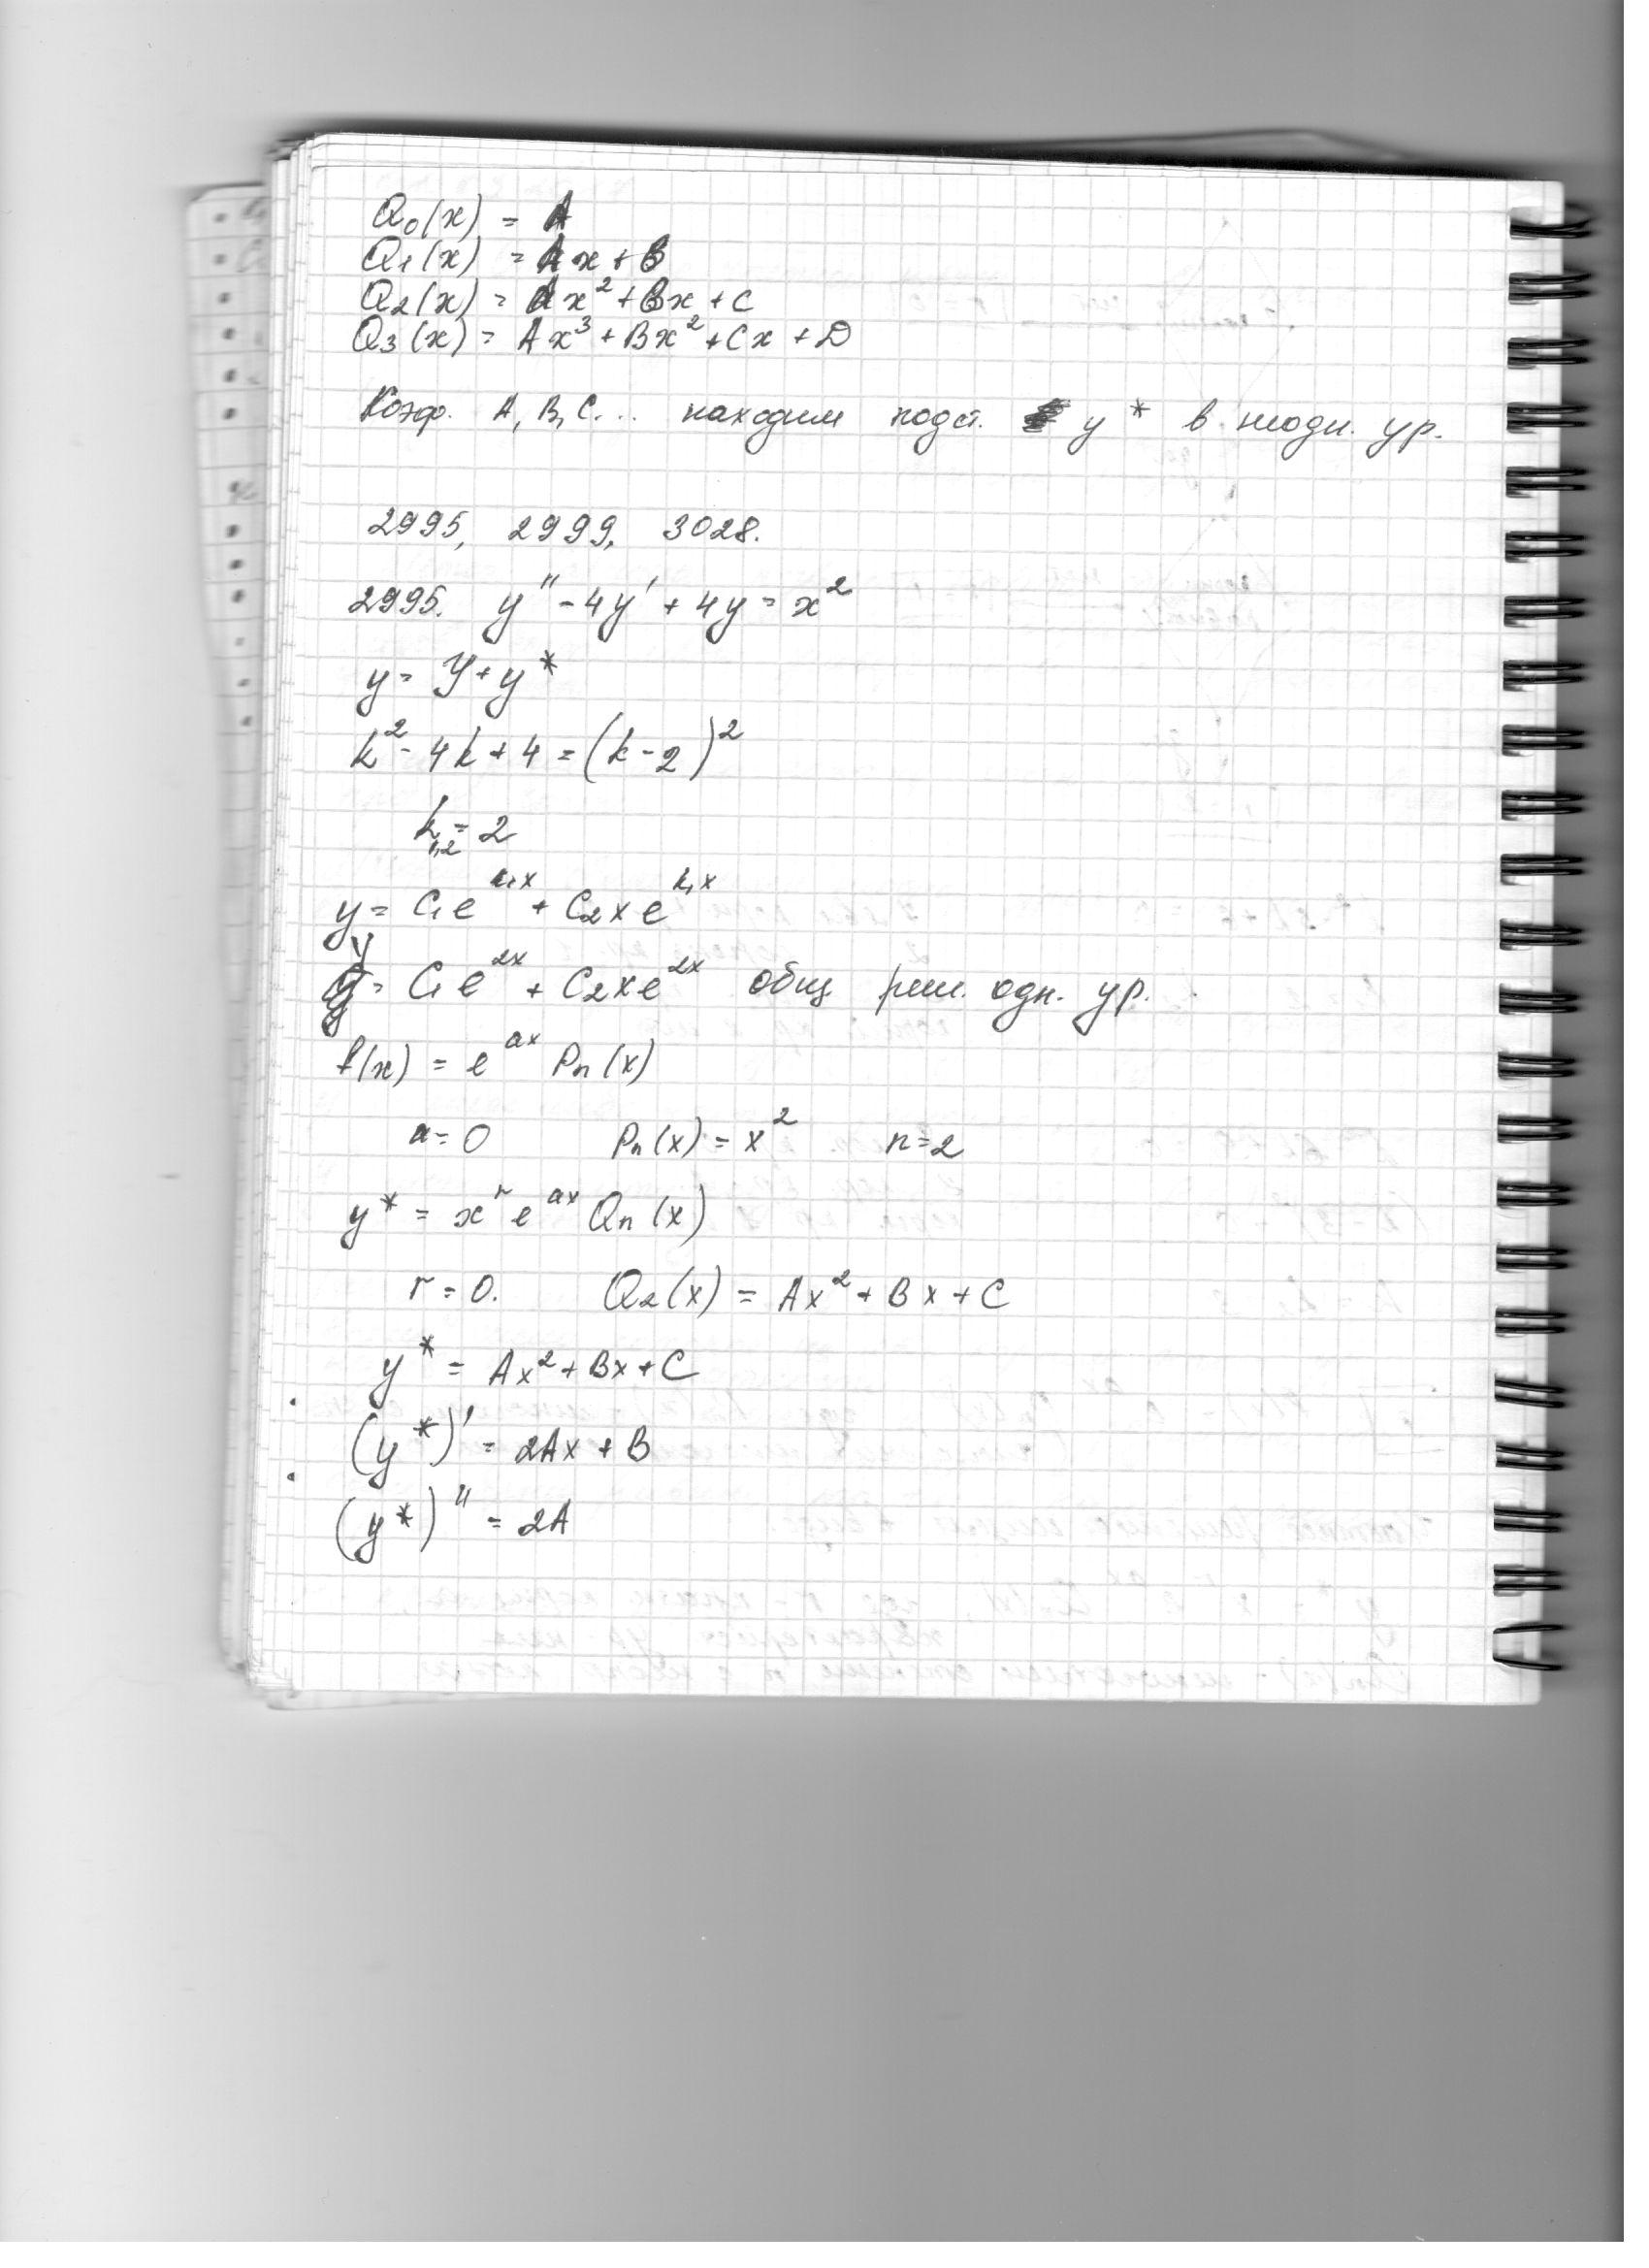 Q₀(x) = A
Q₁(x) = Ax+B
Q₂(x) = Ax²+Bx+C
Q₃(x) = Ax³+Bx²+Cx+D
Коэф. A, B, C... находим подст. y* в неодн. ур.
2995, 2999, 3028.
2995. y''-4y'+4y=x²
y = Y+y*
k²-4k+4=(k-2)²
k₁,₂=2
y = C₁e^{k₁x} + C₂xe^{k₁x}
Y = C₁e^{2x} + C₂xe^{2x} общ. реш. одн. ур.
f(x) = e^{ax} Pₙ(x)
a=0 Pₙ(x) = x² n=2
y* = x^r e^{ax} Qₙ(x)
r=0. Q₂(x) = Ax²+Bx+C
y* = Ax²+Bx+C
(y*)' = 2Ax+B
(y*)'' = 2A